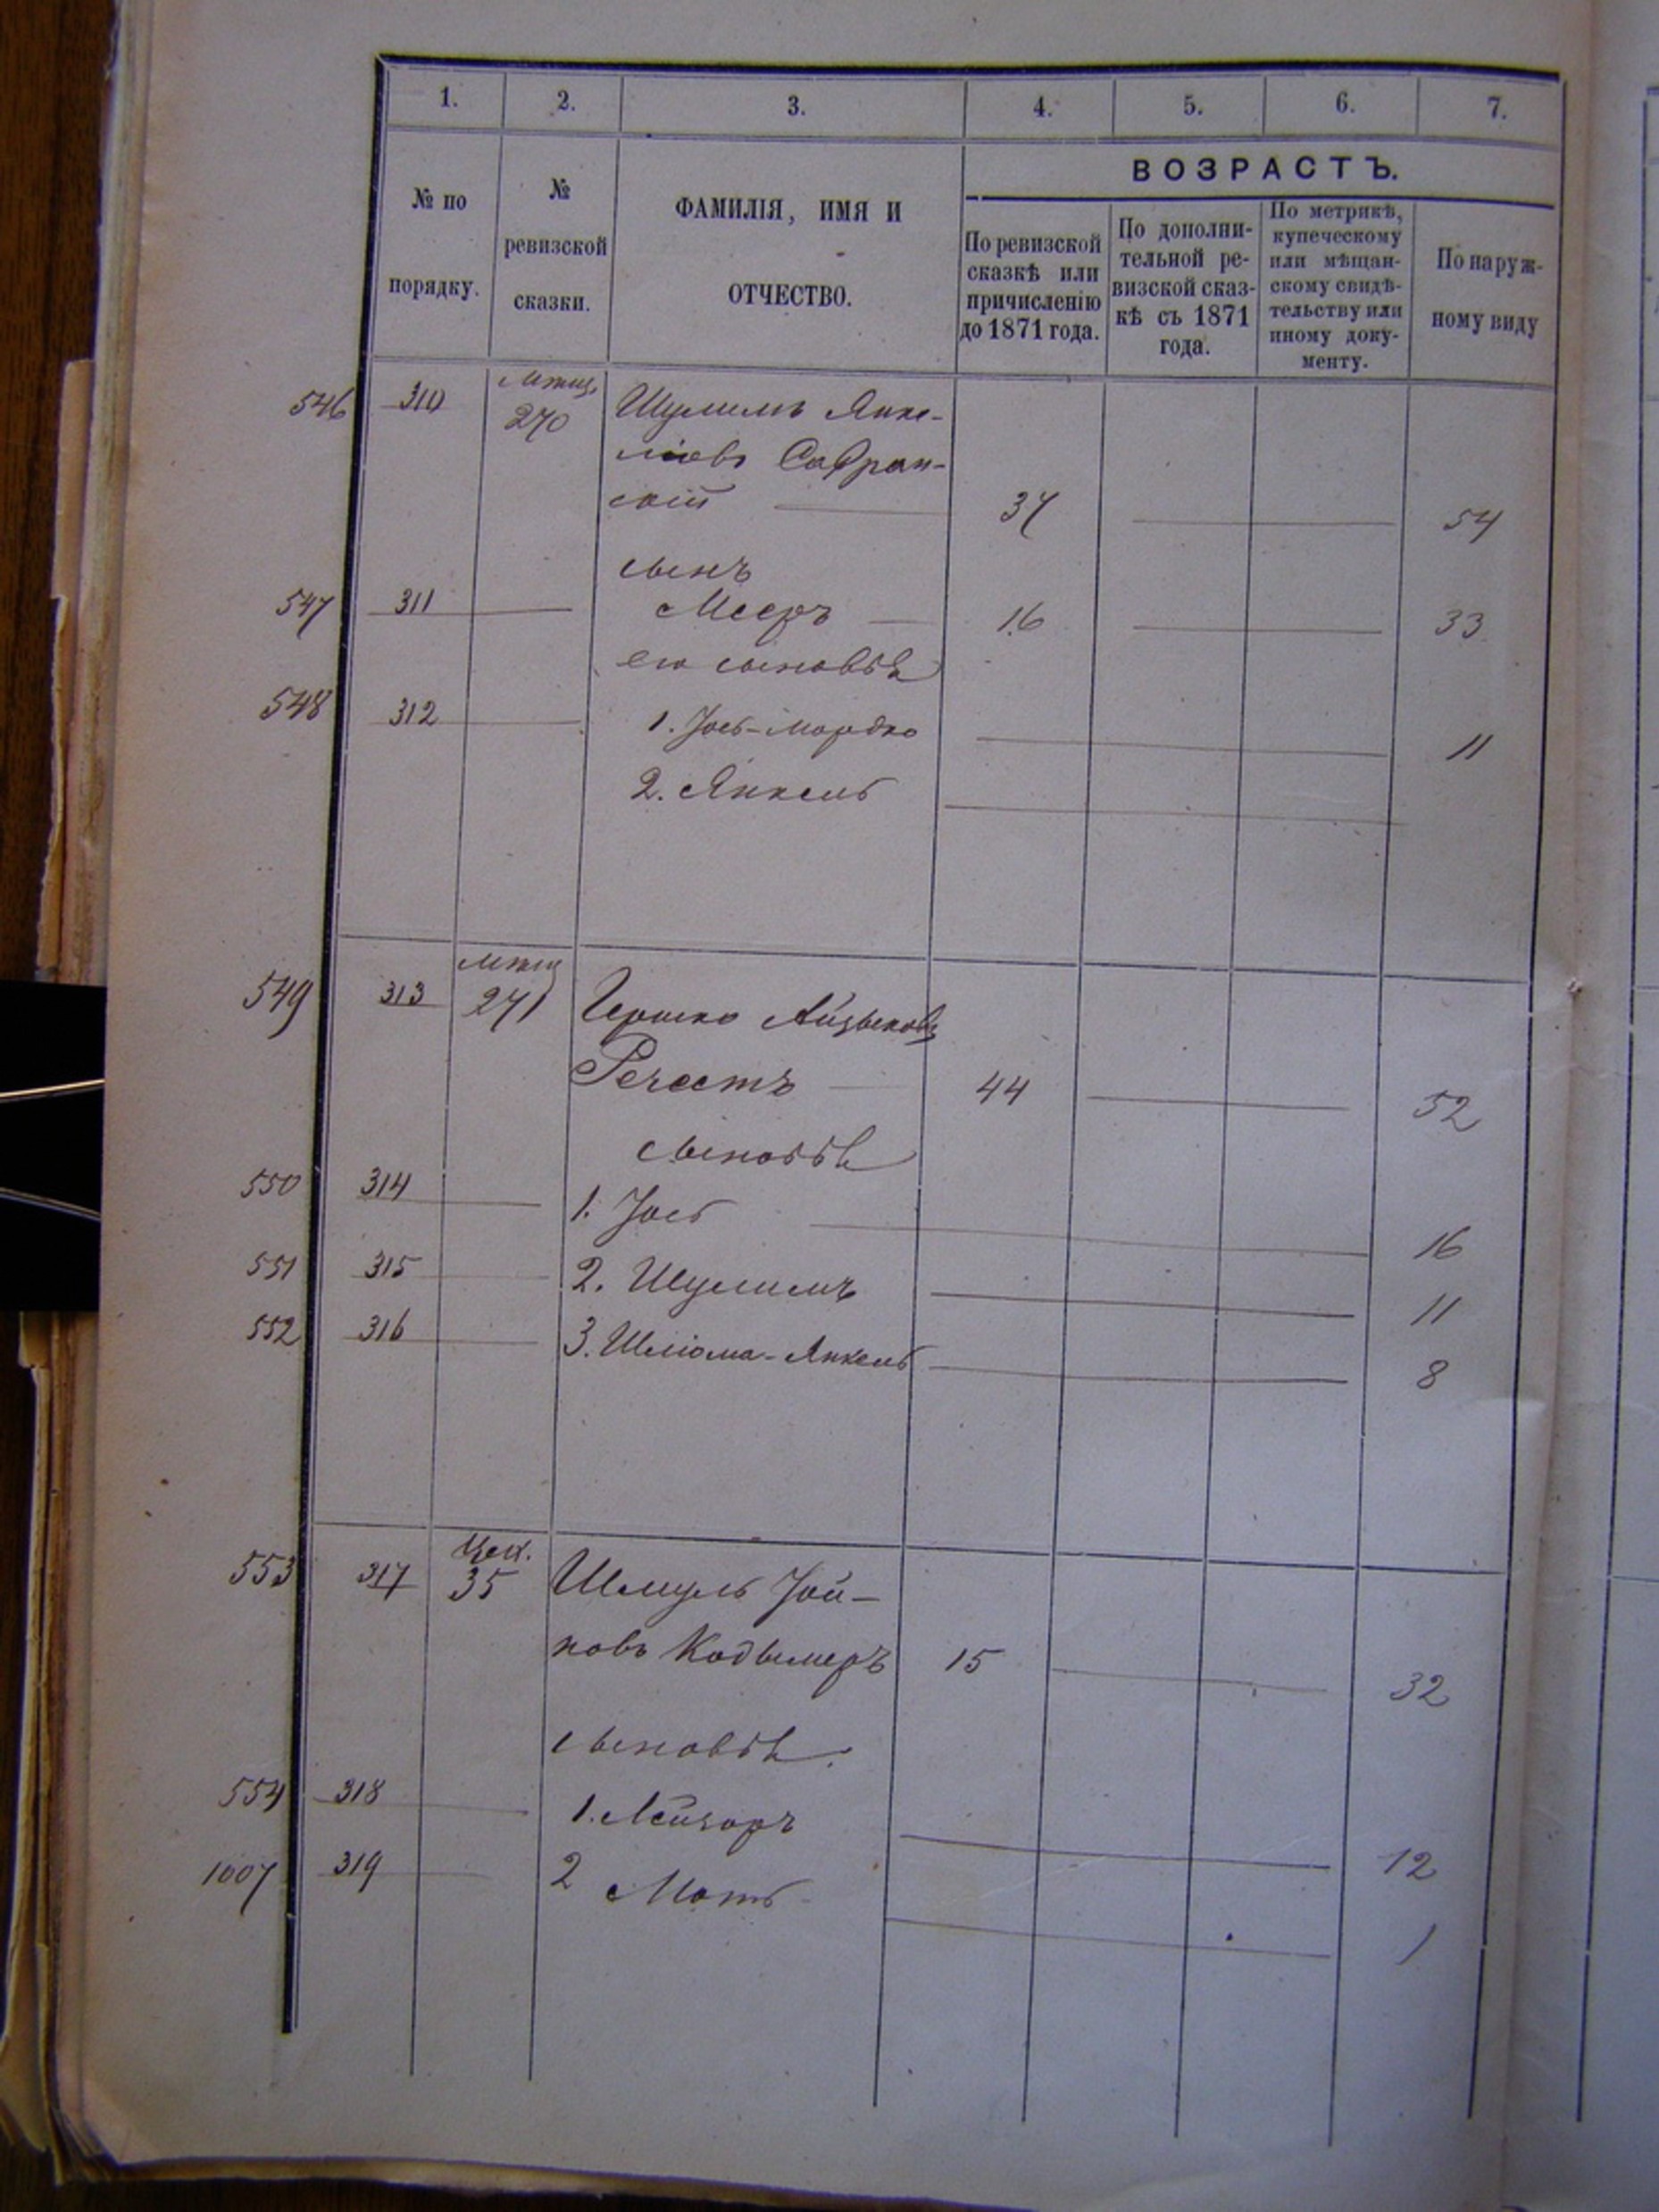 1. 2. 3. 4. 5. 6. 7.
№ по порядку.
№ ревизской сказки.
ФАМИЛІЯ, ИМЯ И ОТЧЕСТВО.
ВОЗРАСТЪ.
По ревизской сказкѣ или причисленію до 1871 года.
По дополни-
тельной ре-
визской сказ-
кѣ съ 1871
года.
По метрикѣ,
купеческому
или мѣщан-
скому свидѣ-
тельству или
иному доку-
менту.
По наруж-
ному виду
546 310 мѣщ. 270 Шулимъ Янке-
ліовъ Савран-
скій 37 54
сынъ
547 311 Мееръ 16 33
его сыновья
548 312 1. Іось-Мордко 11
2. Янкель
549 313 мѣщ 271 Гершко Айзыковъ
Речестъ 44 52
сыновья
550 314 1. Іось 16
551 315 2. Шулимъ 11
552 316 3. Шліома-Янкель 8
553 317 Цех. 35 Шмуль Іой-
новъ Кодымеръ 15 32
сыновья.
554 318 1. Лейзоръ 12
1007 319 2 Моть 1